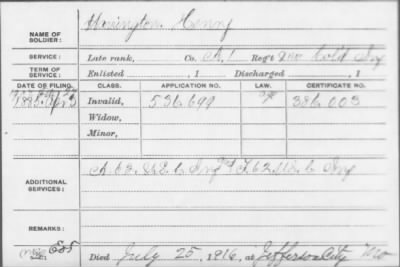 NAME OF SOLDIER: Henry
SERVICE: Late rank, Co. A, 1 Reg't Cold Inf
TERM OF SERVICE: Enlisted , 1 Discharged , 1
DATE OF FILING. CLASS. APPLICATION NO. LAW. CERTIFICATE NO.
1885 Apr 3 Invalid, 536.699 386.003
Widow,
Minor,
ADDITIONAL SERVICES: A 62. U.S. C Inf F. 62 U.S. C Inf
REMARKS:
Died July 25, 1916, at Jefferson City Mo